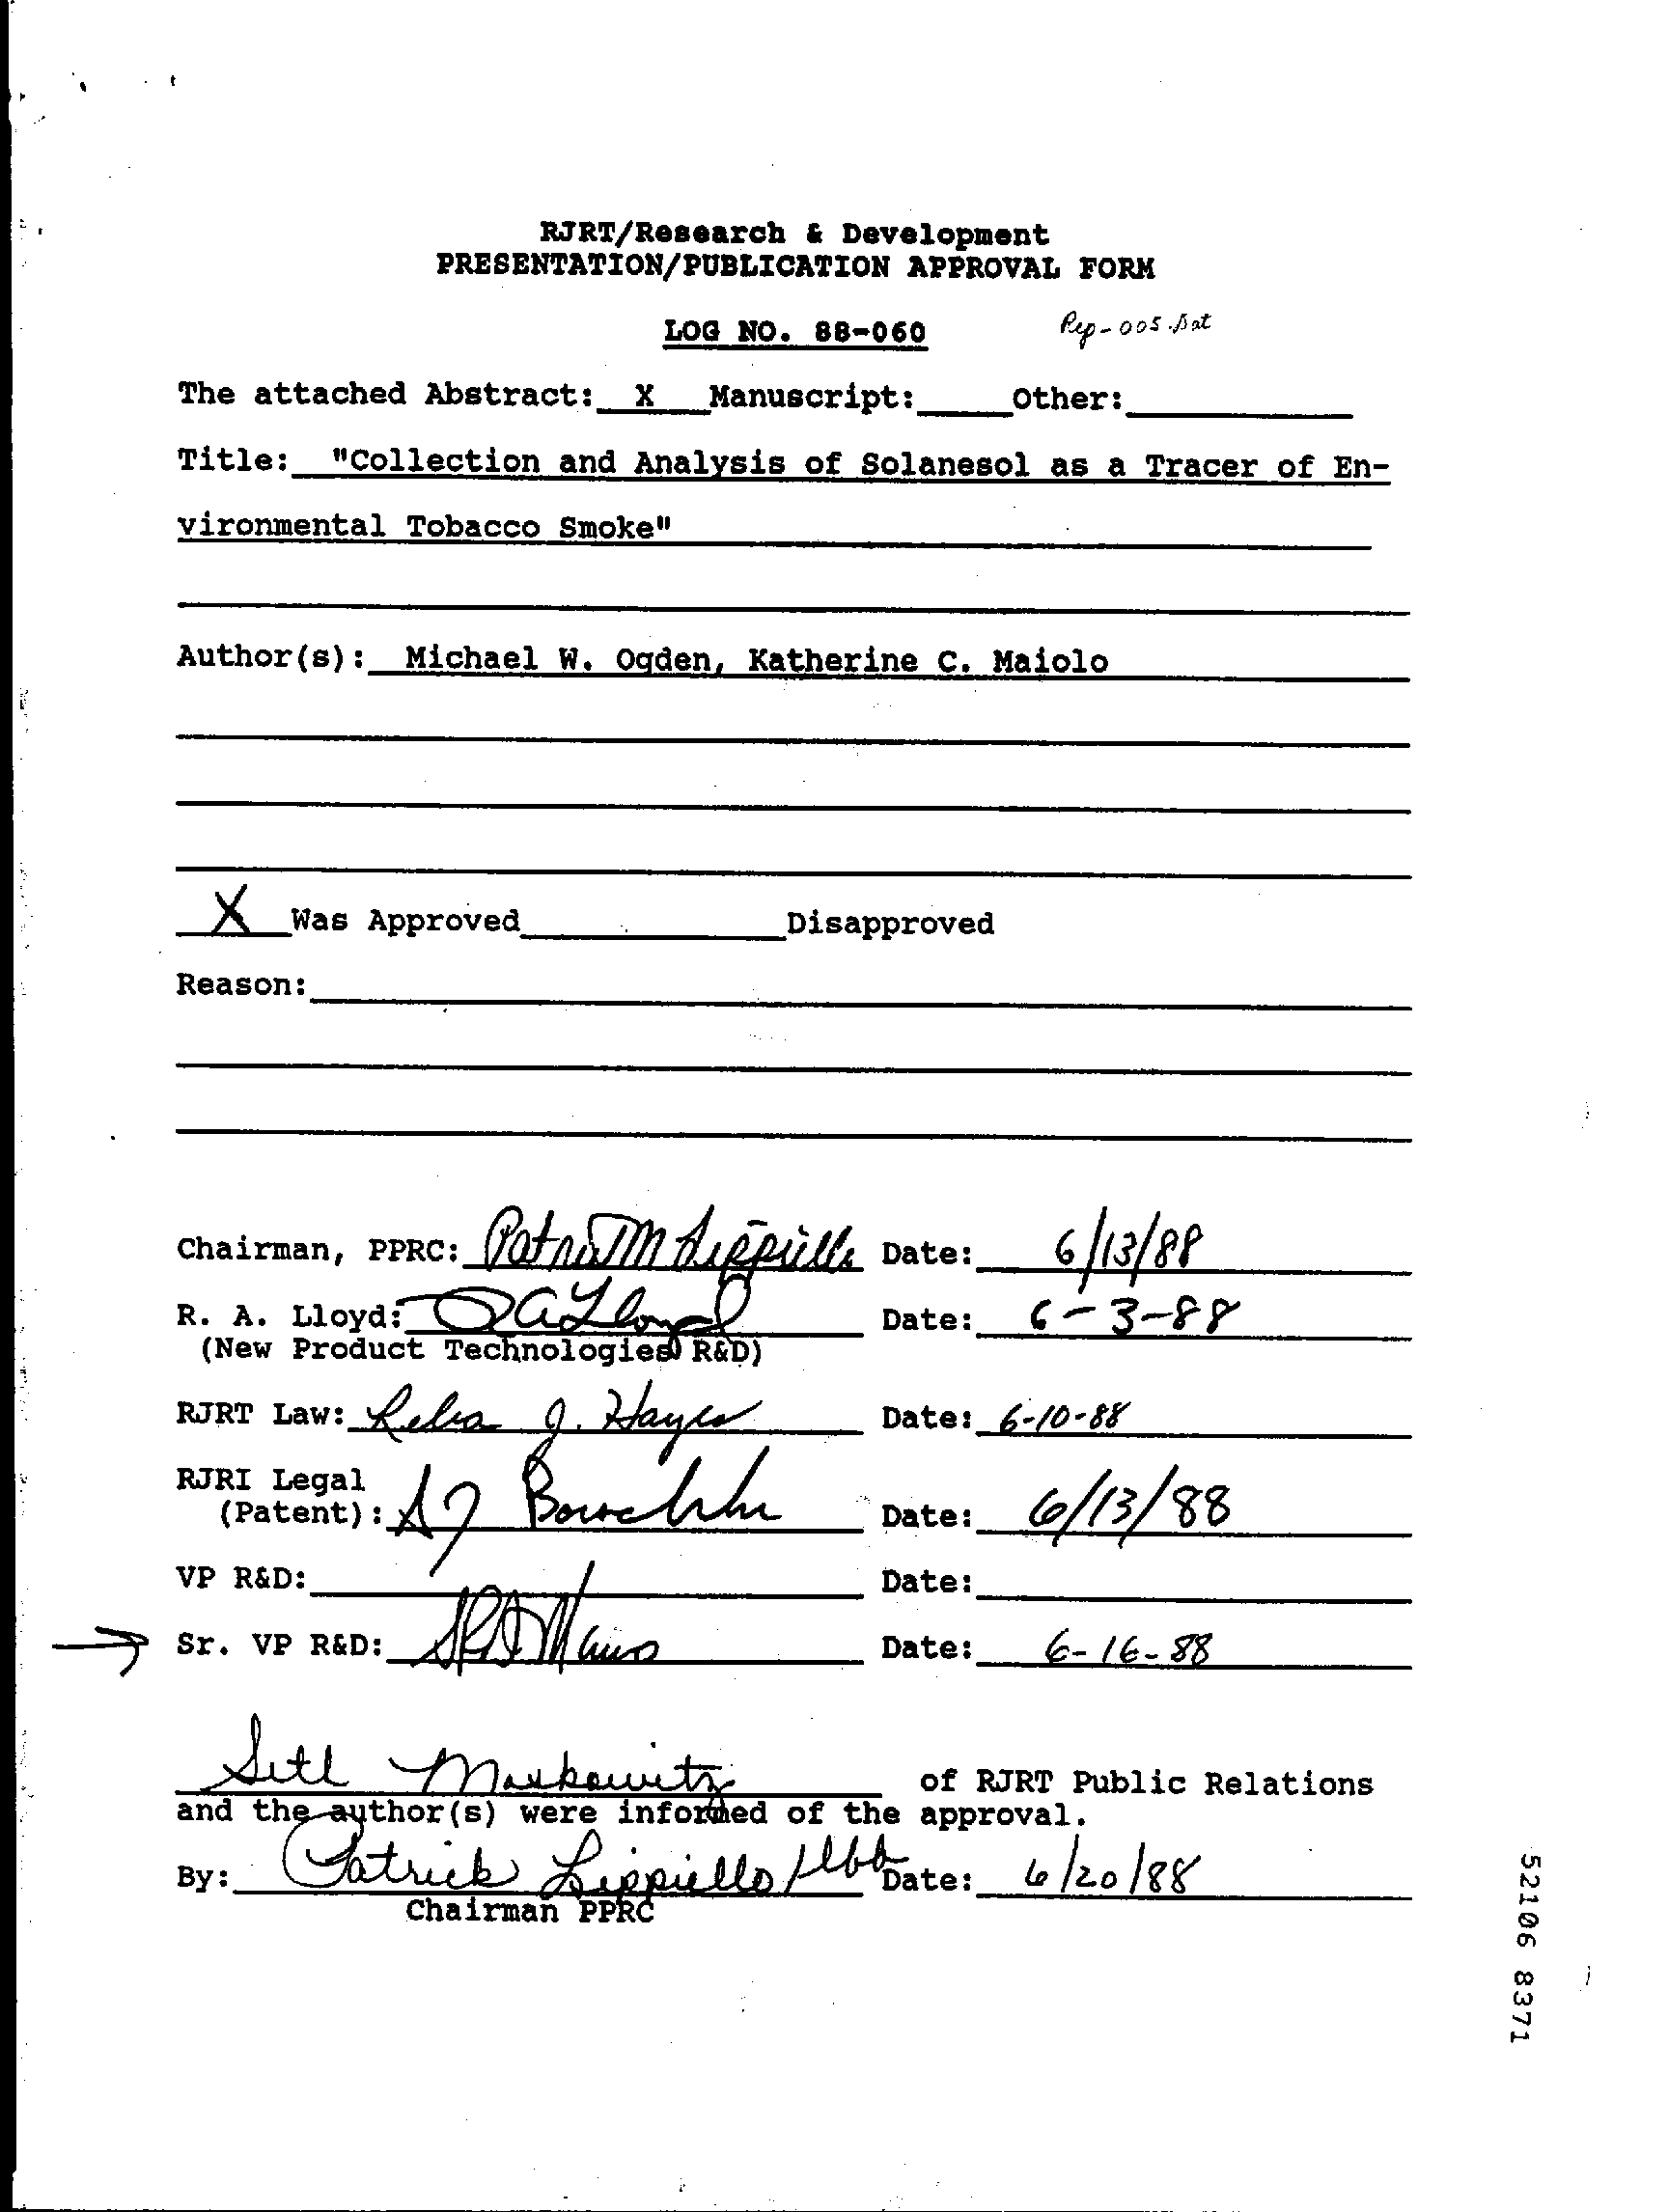 RJRT/Research & Development
PRESENTATION/PUBLICATION APPROVAL FORM
LOG NO. 88-060 Rep-005.Dat
The attached Abstract: X Manuscript: Other:
Title: "Collection and Analysis of Solanesol as a Tracer of En-
vironmental Tobacco Smoke"
Author(s): Michael W. Ogden, Katherine C. Maiolo
X Was Approved Disapproved
Reason:
Chairman, PPRC: Patrick M Lippiello Date: 6/13/88
R. A. Lloyd: RA Lloyd Date: 6-3-88
(New Product Technologies R&D)
RJRT Law: J. Hayes Date: 6-10-88
RJRI Legal
(Patent): Date: 6/13/88
VP R&D: Date:
Sr. VP R&D: Date: 6-16-88
Seth Moskowitz of RJRT Public Relations
and the author(s) were informed of the approval.
By: Patrick Lippiello Date: 6/20/88
Chairman PPRC
52106 8371